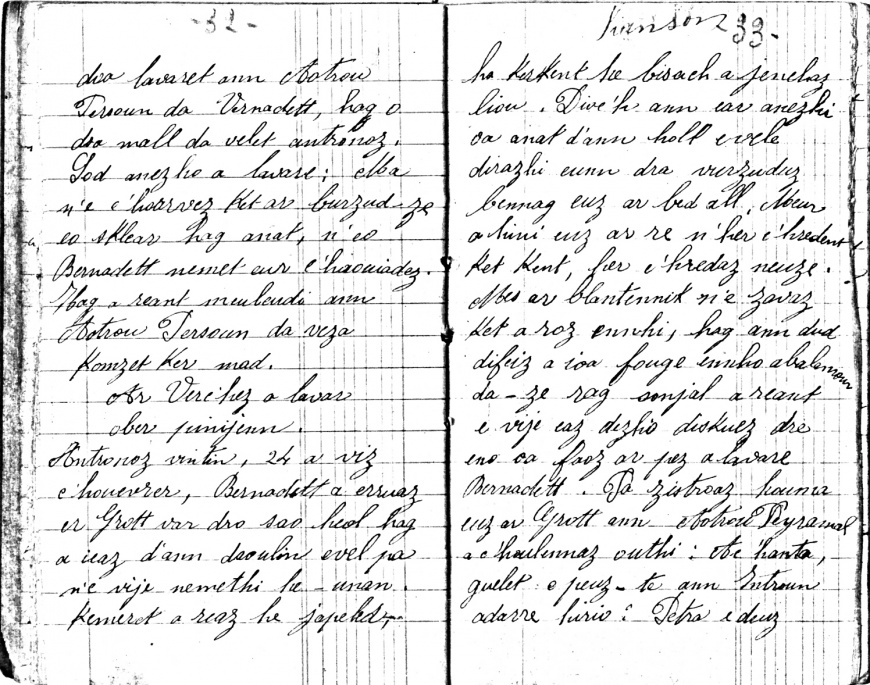 - 32 -
doa lavaret ann Aotrou
Persoun da Vernadett, hag o
doa mall da velet antronoz.
Lod anezho a lavare: Ma
n'e c'hoarvez ket ar burzud-ze
eo sklear hag anat, n'eo
Bernadett nemet eur c'haouiadez.
Hag a reant meuleudi ann
Aotrou Persoun da veza
Komzet Ker mad.
Ar Verc'hez a lavar
ober pinijenn.
Antronoz vintin, 24 a viz
c'houevrer, Bernadett a erruaz
er Grott var dro sao heol hag
a ieaz d'ann daoulin evel pa
n'e vije nemethi he-unan.
Kemeret a reaz he japeled,
33 -
ha Kerkent he bisach a jenchaz
liou. Dive'h ann ear anezhi
oa anat d'ann holl e vele
dirazhi eunn dra vurzuduz
bennag euz ar bed all. Meur
a hini euz ar re n'her c'hredent
Ket Kent, her c'hredaz neuze.
Mes ar blantennik n'e zavaz
Ket a roz ennhi, hag ann dud
difeiz a ioa fouge ennho abalamour
da-ze rag sonjal a reant
e vije eaz dezho diskuez dre
eno oa faoz ar pez a lavare
Bernadett. Pa zistroaz houma
euz ar Grott ann Aotrou Peyramal
a c'houlennaz outhi: Ac'hanta,
guelet e peuz-te ann Introun
adarre hirio? Petra e deuz